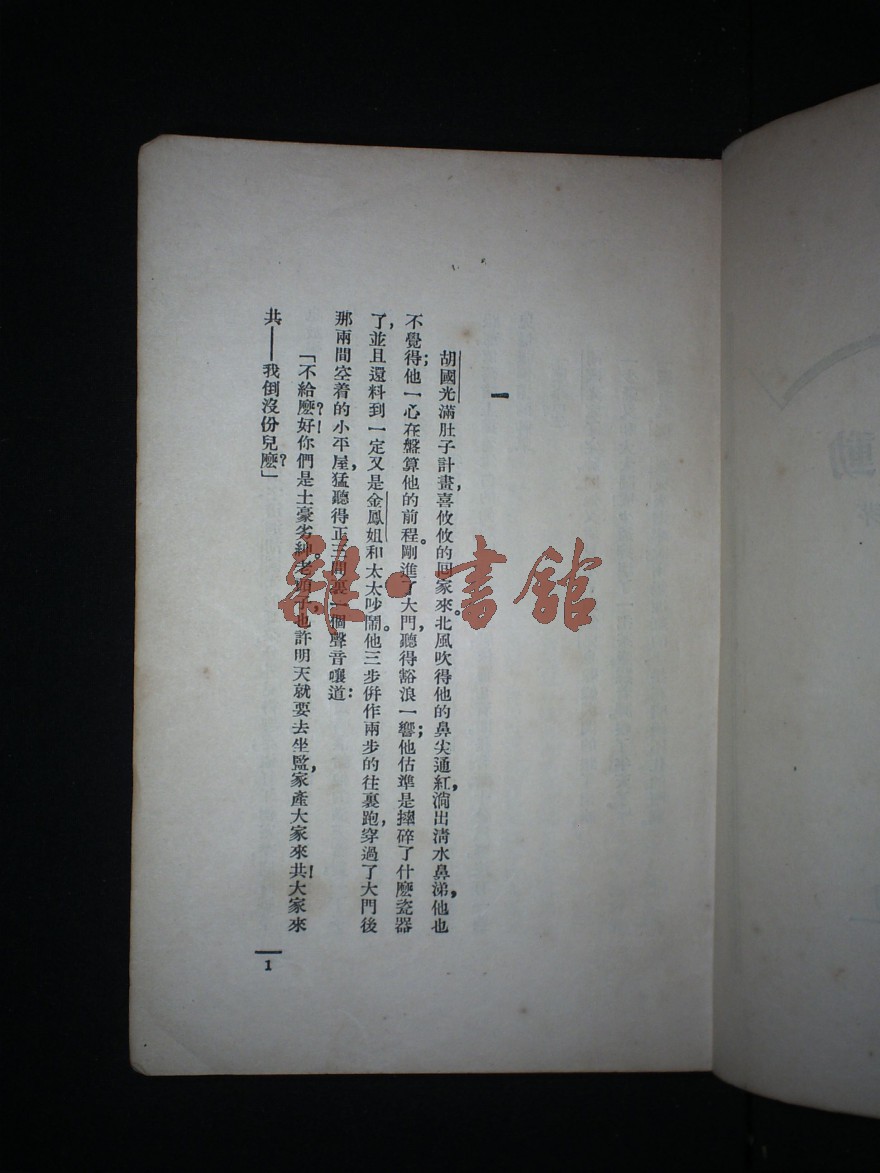 動
一
胡國光滿肚子計畫，喜攸攸的回家來。北風吹得他的鼻尖通紅，淌出清水鼻涕，他也
不覺得；他一心在盤算他的前程。剛進了大門，聽得豁浪一響；他估準是摔碎了什麽瓷器
了，並且還料到一定又是金鳳姐和太太吵鬧。他三步併作兩步的往裏跑，穿過了大門後
那兩間空着的小平屋，猛聽得正三間裏一個聲音嚷道：
「不給麽？好！你們是土豪劣紳。老頭子，也許明天就要去坐監，家產大家來共！大家來
共——我倒沒份兒麽？」
1
雜·書館